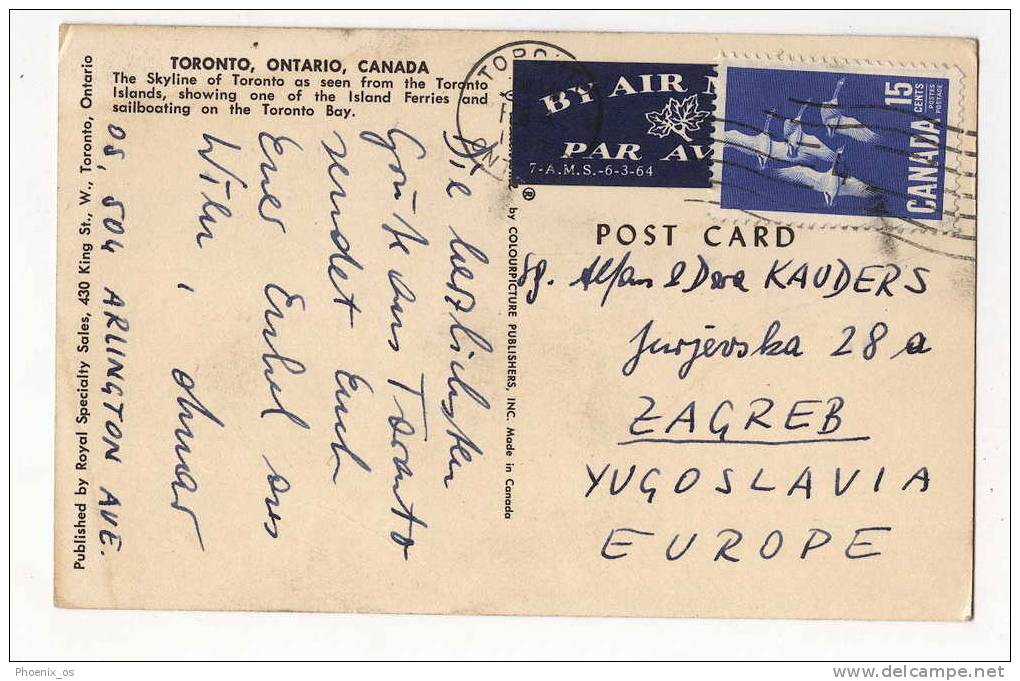 TORONTO, ONTARIO, CANADA
The Skyline of Toronto as seen from the Toronto
Islands, showing one of the Island Ferries and
sailboating on the Toronto Bay.
Die herzlichsten
Grüße aus Toronto
sendet Euch
Euer Enkel aus
Wien,
05, 504 ARLINGTON AVE.
Published by Royal Specialty Sales, 430 King St., W., Toronto, Ontario
® by COLOURPICTURE PUBLISHERS, INC. Made in Canada
TORONTO
ONT
BY AIR M
PAR AV
7-A.M.S.-6-3-64
15
CENTS
POSTES
POSTAGE
CANADA
POST CARD
& Dora KAUDERS
Jurjevska 28 a
ZAGREB
YUGOSLAVIA
EUROPE
Phoenix_os